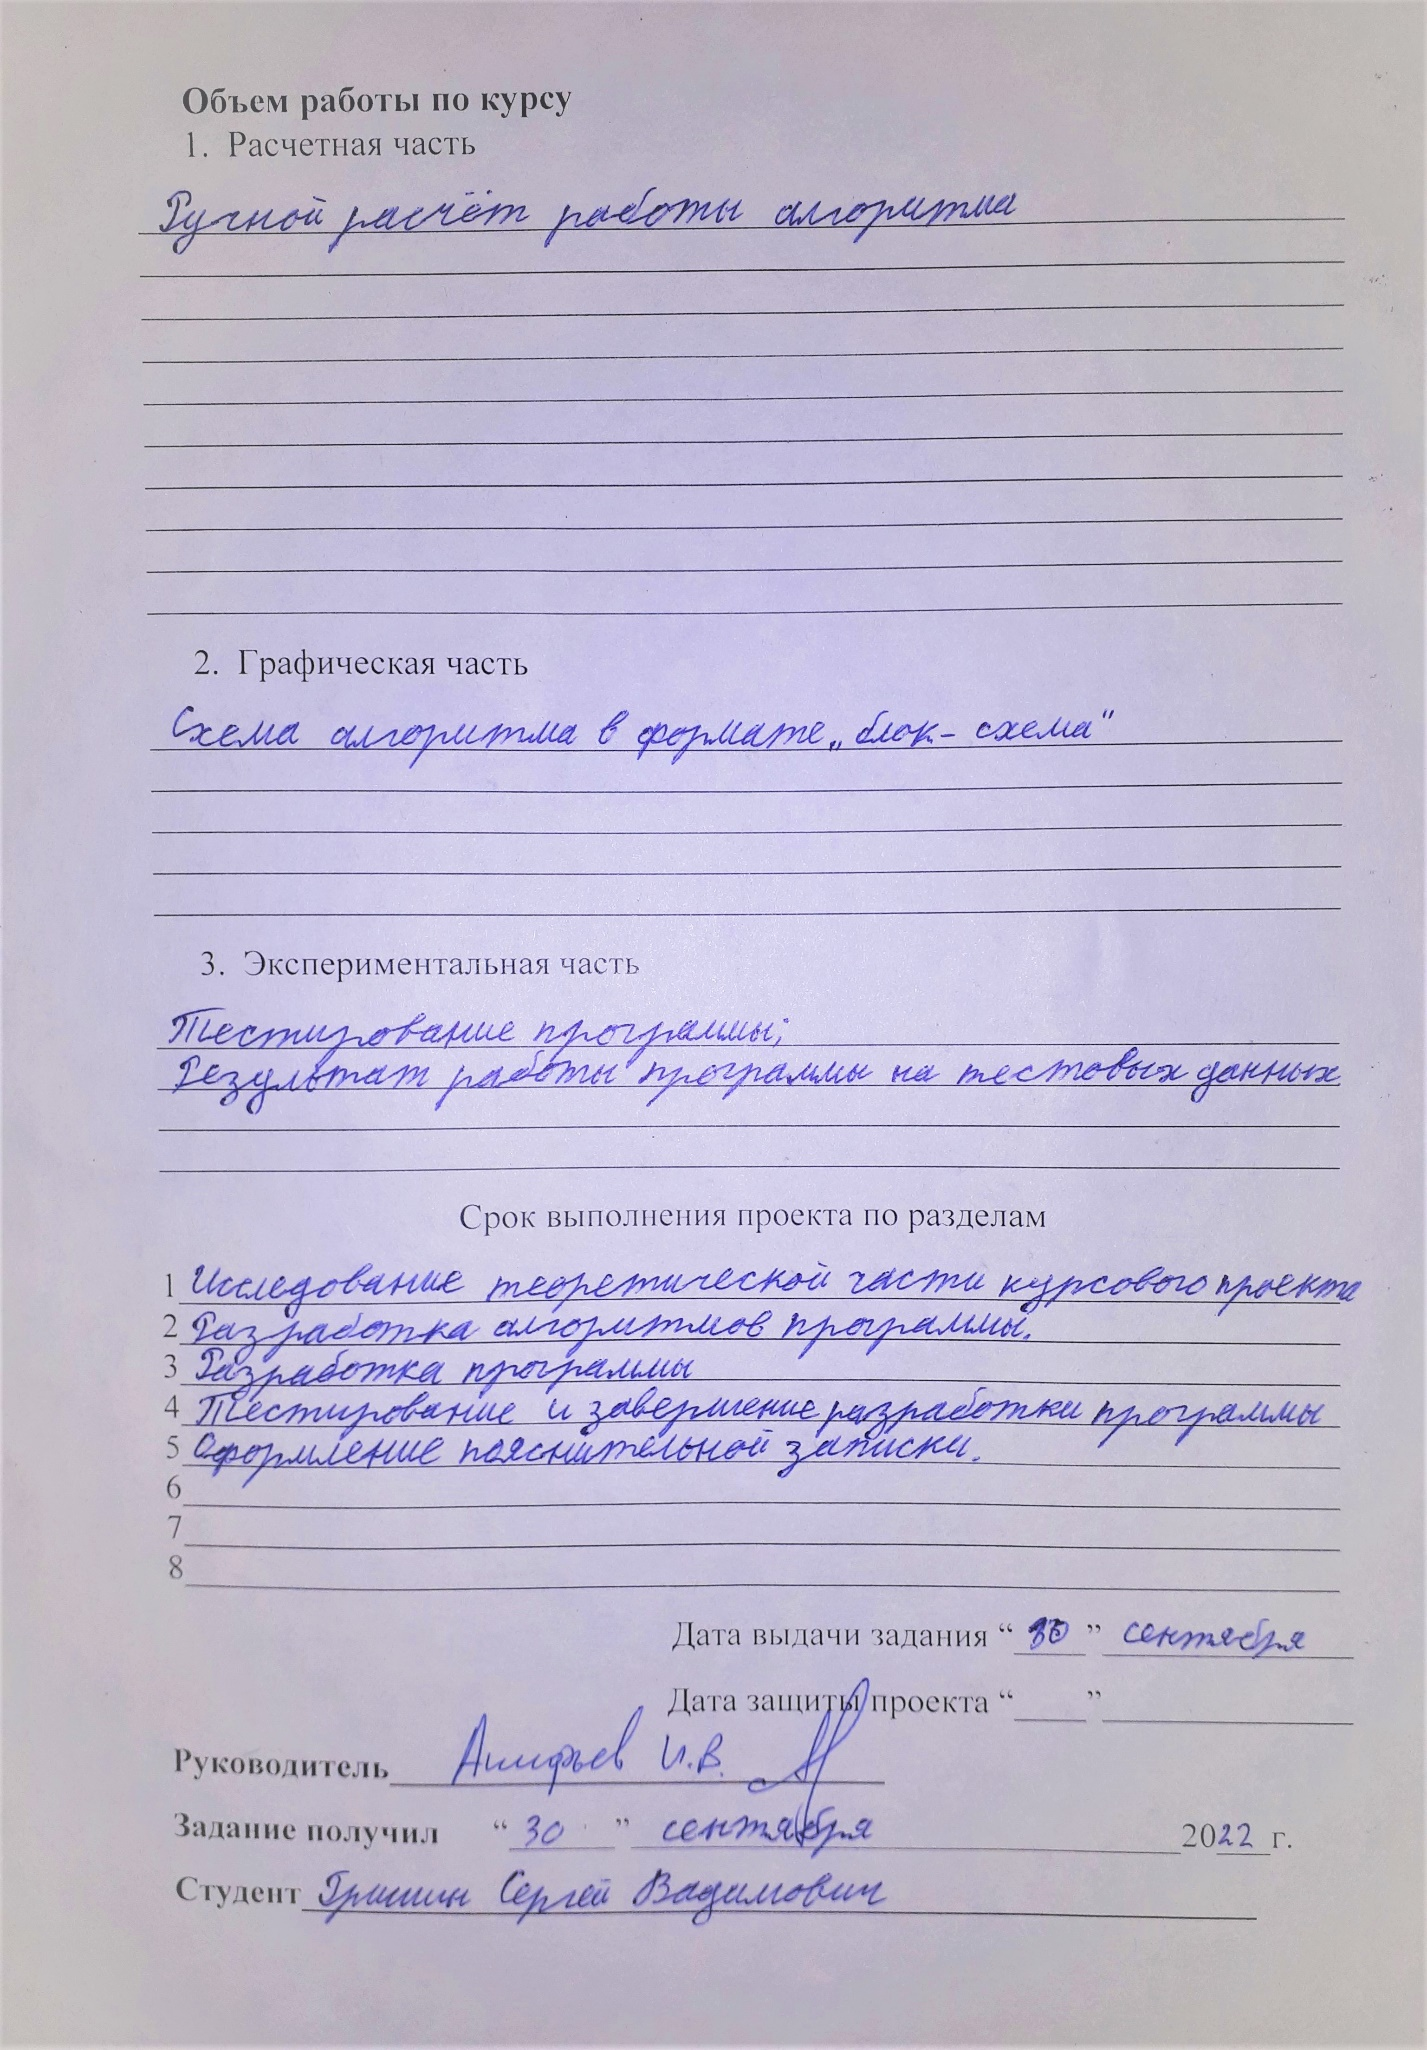 Объем работы по курсу
1. Расчетная часть
Ручной расчёт работы алгоритма
2. Графическая часть
Схема алгоритма в формате „блок-схема“
3. Экспериментальная часть
Тестирование программы;
Результат работы программы на тестовых данных
Срок выполнения проекта по разделам
1 Исследование теоретической части курсового проекта
2 Разработка алгоритмов программы.
3 Разработка программы
4 Тестирование и завершение разработки программы
5 Оформление пояснительной записки.
6
7
8
Дата выдачи задания “ 30 ” сентября
Дата защиты проекта “ ”
Руководитель И.В.
Задание получил “ 30 ” сентября 2022 г.
Студент Гришин Сергей Вадимович